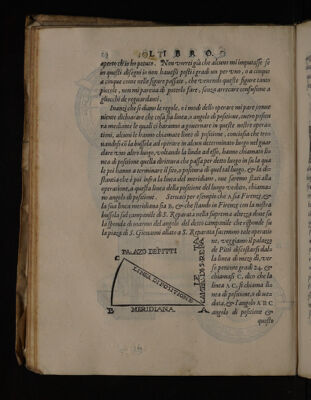 LIBRO.
aperto che io ho potuto. Non verrei già che alcuni mi imputasse se
in questi disegni io non havessi posti gradi un per uno, o a cinque
a cinque come nelle figure passate, che vvenendo queste figure tanto
piccole, non mi pareva di poterle fare, senza arrecare confusione a
gliocchi de reguardanti.
Inanzi che si diano le regole, e i modi dello operare mi pare conve
niente dichiarare che cosa sia linea, o angolo di positione, cuero positu
ra mediante le quali ci haremo a governare in queste nostre opera
tioni, alcuni le hanno chiamate linee di positione, conciosia che tro
vandosi cō la bussola ad operare in alcun determinato luogo nel guar
dare vno altro luogo, voltando la linda ad esso, hanno chiamato li
nea di positione quella dirittura che passa per detto luogo in su la qua
le poi hanno a terminare il sito, o positura di quel tal luogo, & la di
stantia che è poi infra la linea del meridiano, ove saremo stati alla
operatione, a questa linea della positione del luogo veduto, chiama
no angolo di positione. Servaci per esempio che A sia Firenze, &
la sua linea meridiana sia B, & che stando in Firenze con la nostra
bussola sul campanile di S. Reparata nella suprema altezza dove sia
la sponda di marmo del detto campanile che risponde su
la piaza di S. Giovanni allato a S. Reparata facemmo tale operatio
ne, veggiamo il palazzo
de Pitti discostarsi dal
la linea di mezo dì, ver
so ponente gradi 24. &
chiamasi C, dico che la
linea A C, si chiama li
nea di positione, o di ve
duta, & l'angolo A B C
angolo di positione &
questo
PALAZO DE PITTI
C
LINEA DI POSITIONE
B
MERIDIANA
A